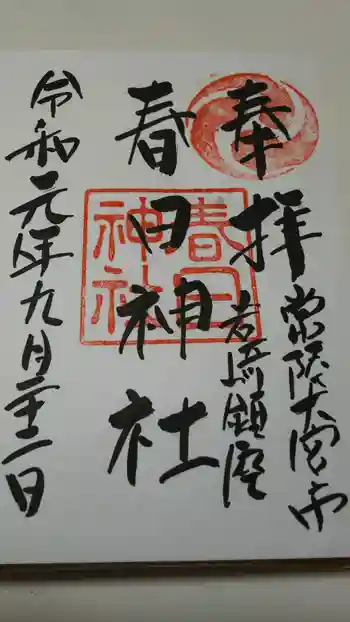 奉拝
常陸大宮市
岩崎鎮座
春日神社
春日
神社
令和元年九月二十二日